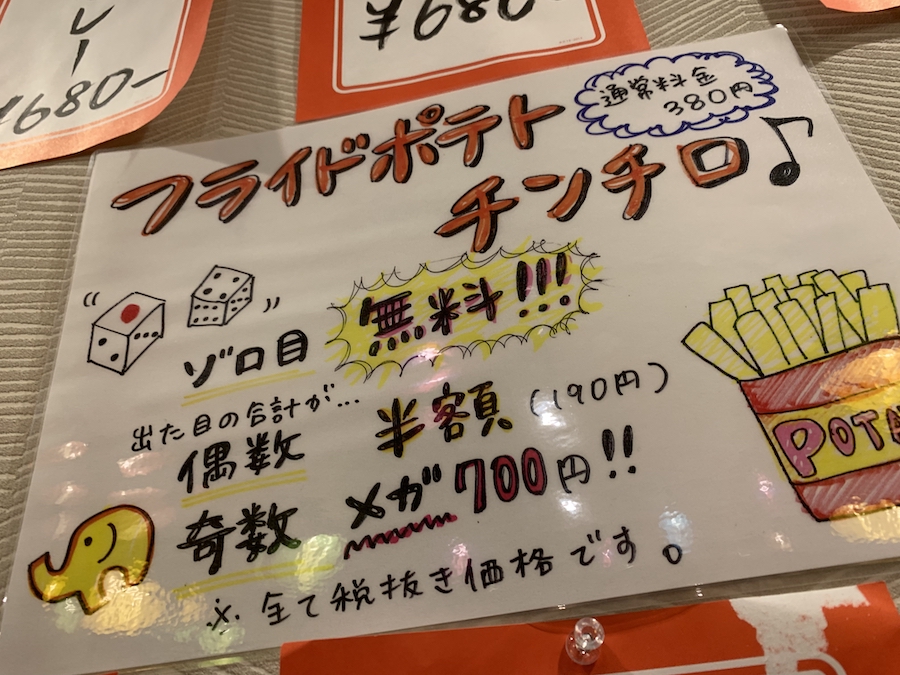 レー
¥680-
¥680-
通常料金
380円
フライドポテト
チンチロ♪
ゾロ目 無料!!!
出た目の合計が…
偶数 半額(190円)
奇数 メガ700円!!
※全て税抜き価格です。
POTA